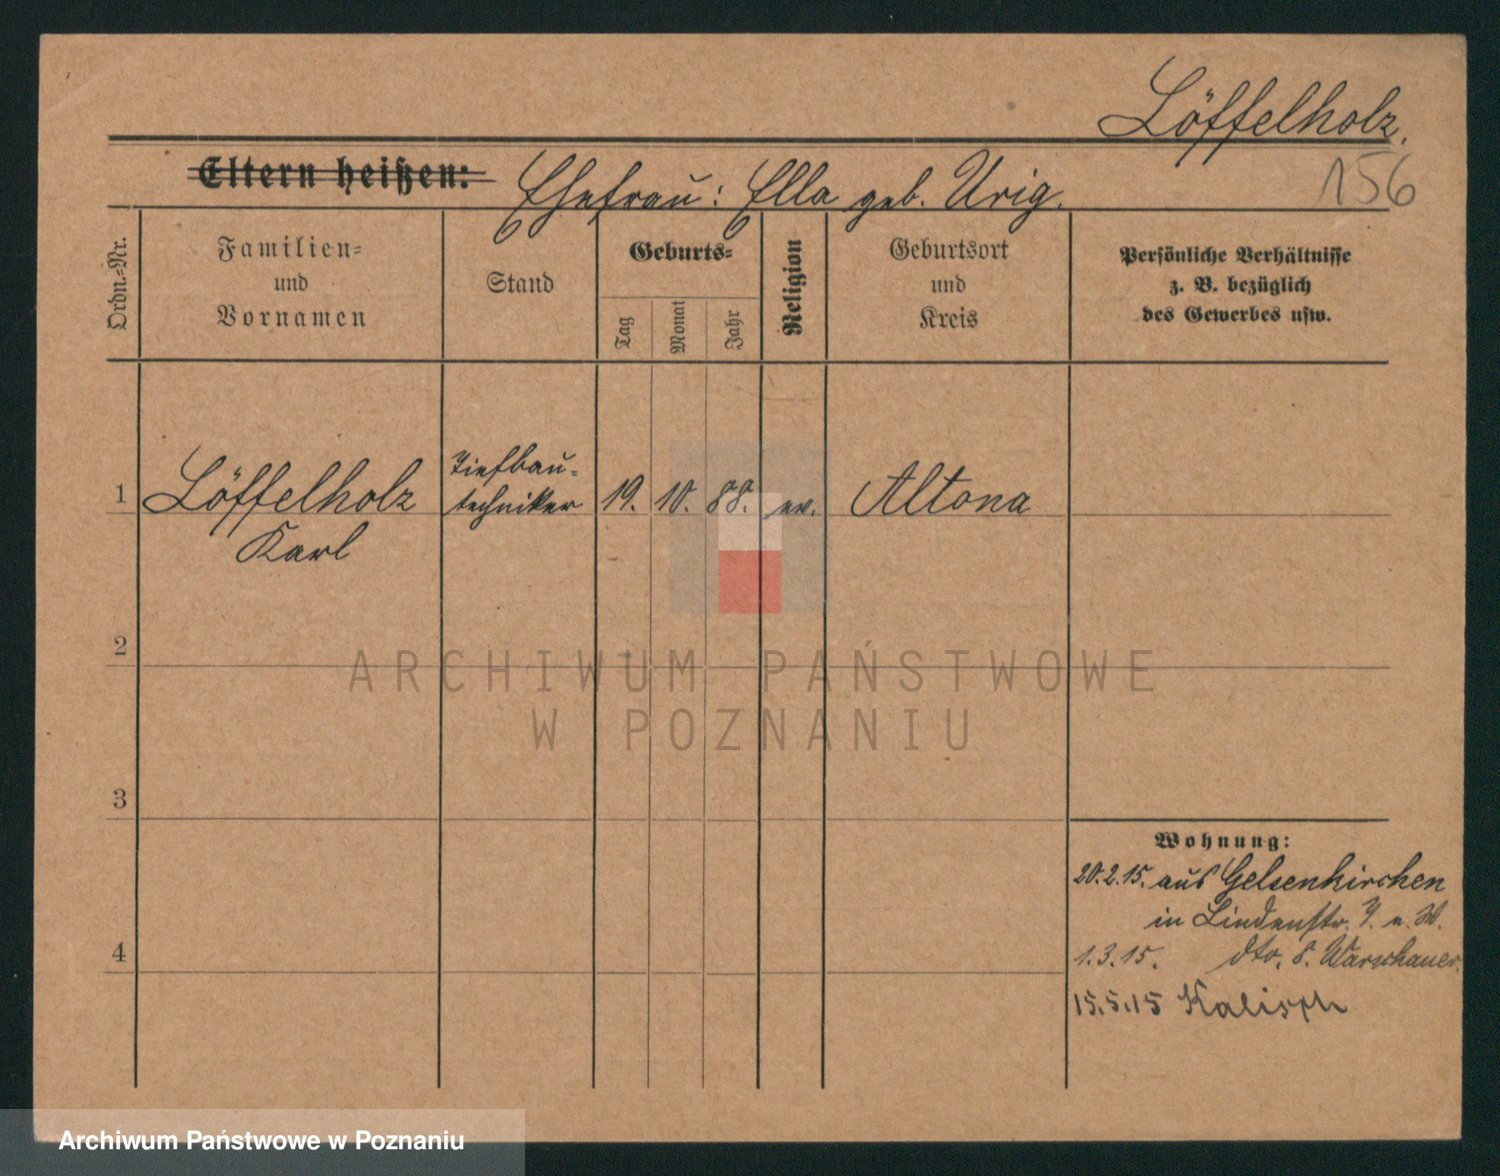 Löffelholz.
156
Eltern heißen: Ehefrau: Ella geb. Urig.
Ordn.-Nr.
Familien-
und
Vornamen
Stand
Geburts-
Tag
Monat
Jahr
Religion
Geburtsort
und
Kreis
Persönliche Verhältnisse
z. B. bezüglich
des Gewerbes usw.
1 Löffelholz Tiefbau-
techniker 19. 10. 88. ev. Altona
Karl
2
3
4
Wohnung:
20.2.15. aus Gelsenkirchen
in Lindenstr.
1.3.15. dto. Warschauer
15.5.15 Kalisch
ARCHIWUM PAŃSTWOWE
W POZNANIU
Archiwum Państwowe w Poznaniu